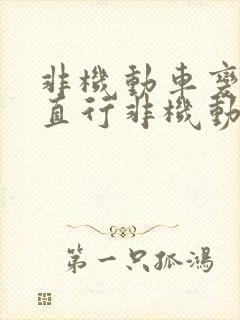 非機動車變
直行非機動
第一只孤鴻